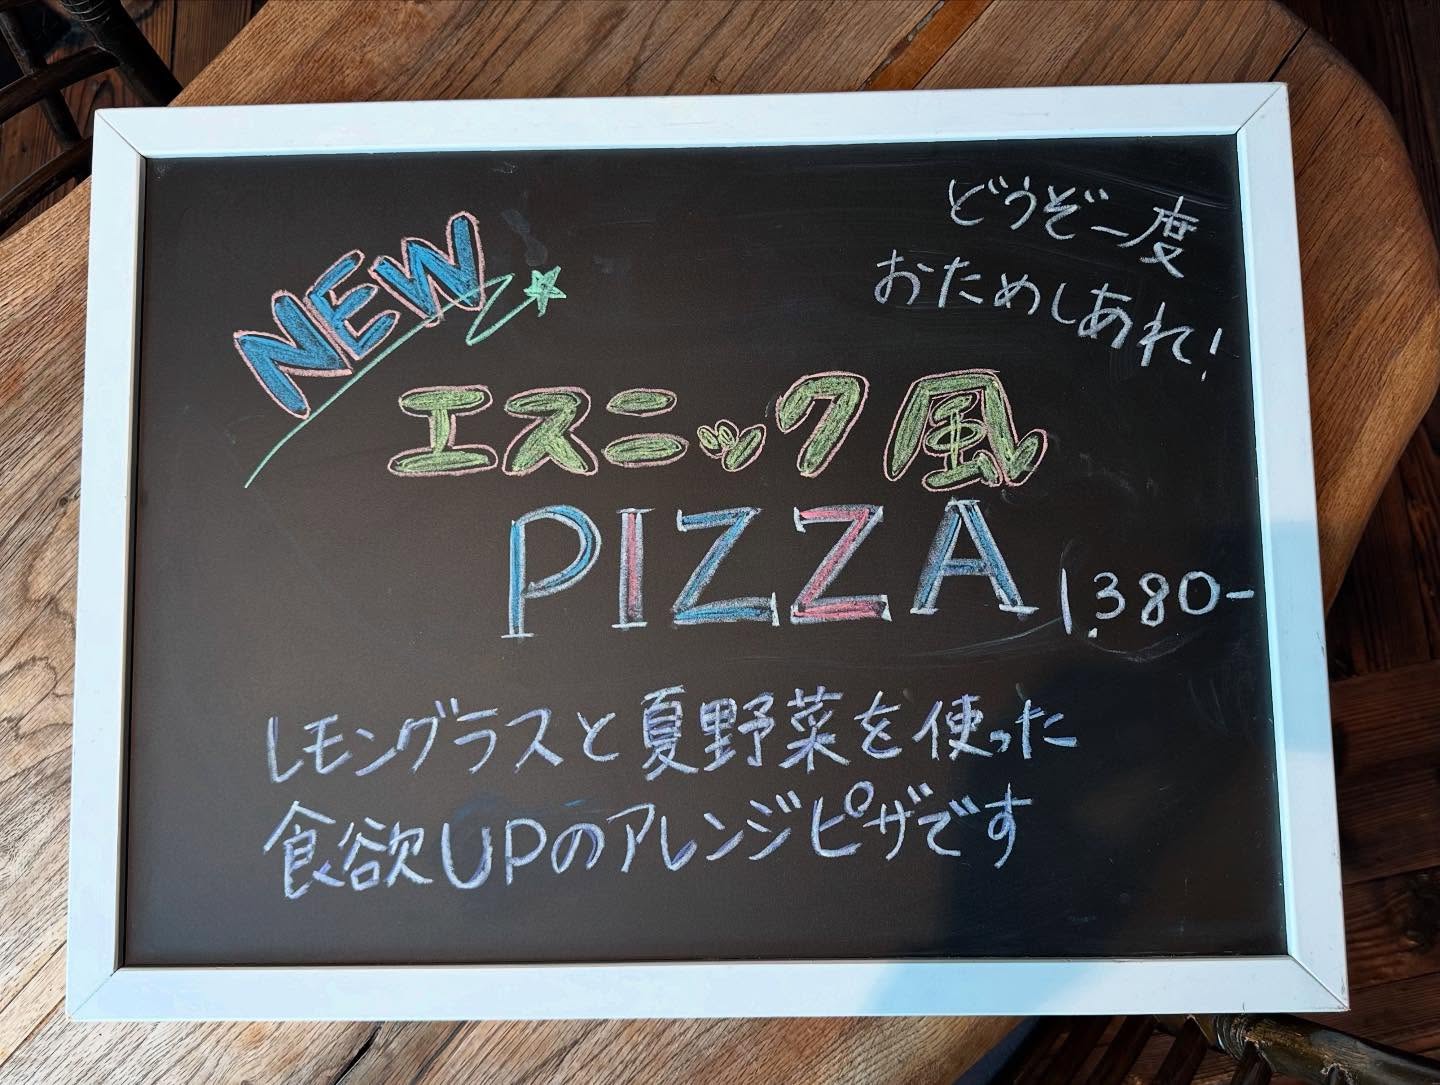 NEW
どうぞ一度
おためしあれ!
エスニック風
PIZZA 1.380-
レモングラスと夏野菜を使った
食欲UPのアレンジピザです